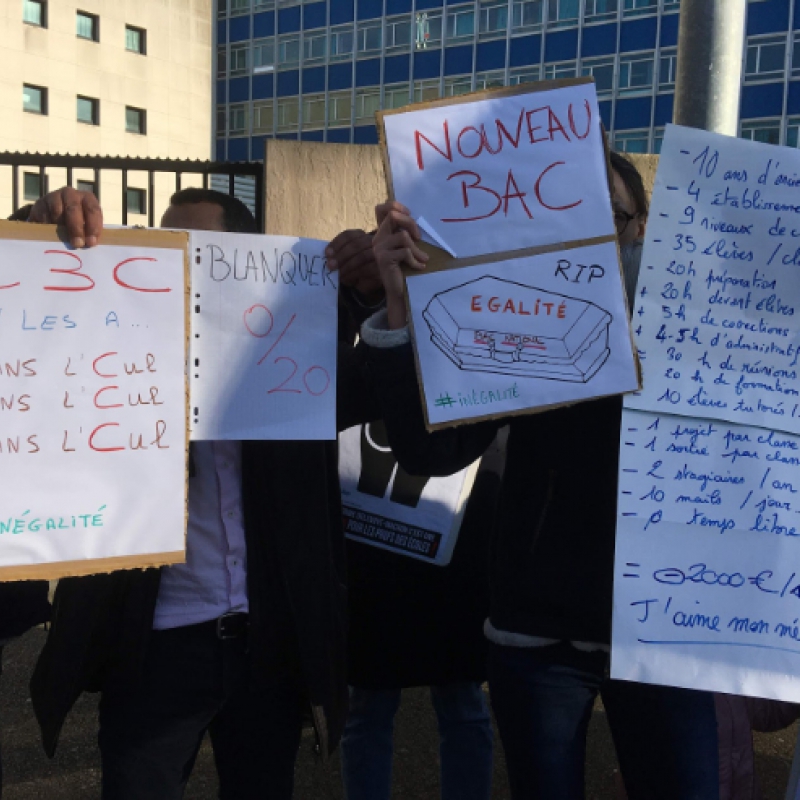 3C
LES A...
NS L'Cul
NS L'Cul
NS L'Cul
NÉGALITÉ
BLANQUER
0/20
NOUVEAU
BAC
RIP
EGALITÉ
BAC NATIONAL
#inÉGALITÉ
POUR LES PROFS DES ÉCOLES
- 10 ans d'
- 4 établissem
- 9 niveaux de c
- 35 élèves / cl
- 20h préparation
+ 20h devant élèves
+ 5h de corrections
+ 4-5h d'administratif
30 h de réunions
20 h de formation
10 élèves tutorés
- 1 projet par classe
- 1 sortie par class
- 2 stagiaires / an
- 10 mails / jour
- 0 temps libre
= 2000€/
J'aime mon mé